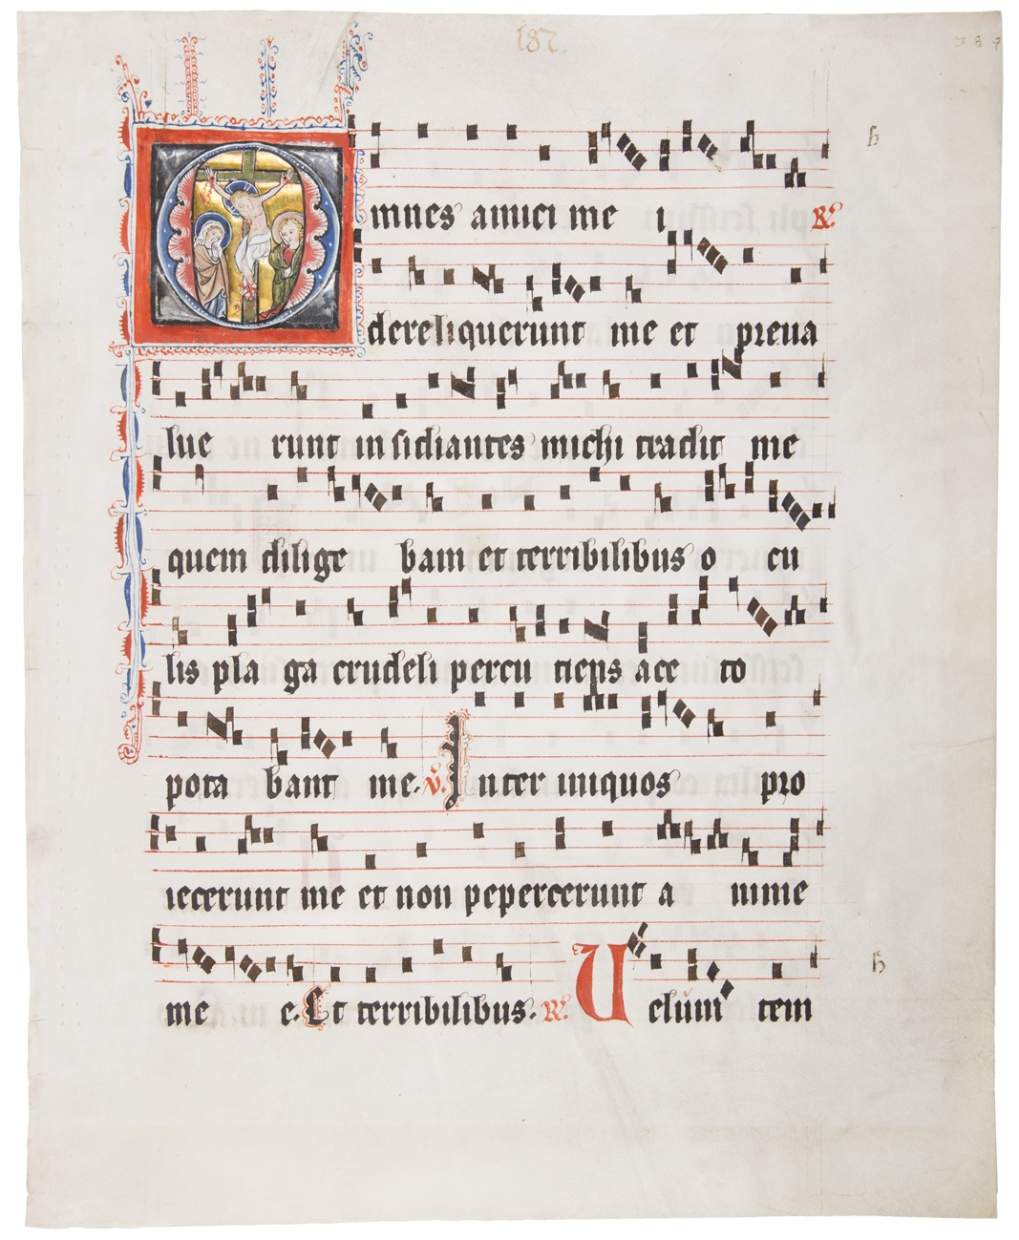 187.
h
Omnes amici me i ℟
dereliquerunt me et preua
lue runt insidiantes michi tradit me
quem dilige bam et terribilibus o cu
lis pla ga crudeli percu tiens ace to
pota bant me. ℣ Inter iniquos pro
iecerunt me et non pepercerunt a nime
h
me e. Et terribilibus. ℟ Uelum tem